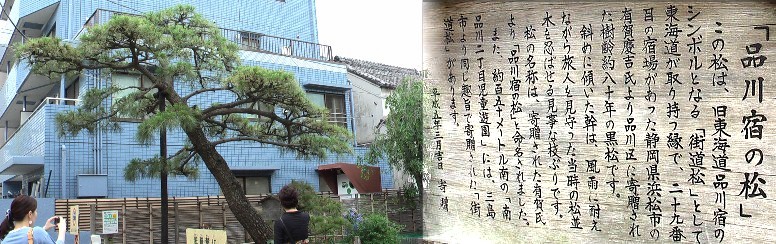 「品川宿の松」
この松は、旧東海道品川宿の
シンボルとなる「街道松」として
東海道が取り持つ縁で、二十九番
目の宿場があった静岡県浜松市の
有賀慶吉氏より品川区に寄贈され
た樹齢約八十年の黒松です。
斜めに傾いた幹は、風雨に耐え
ながら旅人を見守った当時の松並
木を忍ばせる見事な枝ぶりです。
松の名称は、寄贈された有賀氏
より「品川宿の松」と命名されました。
また、約百五十メートル南の「南
品川二丁目児童遊園」には、三島
市より同じ趣旨で寄贈された「街
道松」があります。
平成五年三月吉日